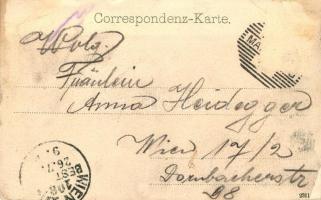 Correspondenz-Karte.
Wolg.
Fräulein
Anna Heidegger
Wien 17/2
Dornbacherstr
98
WIEN
BEST